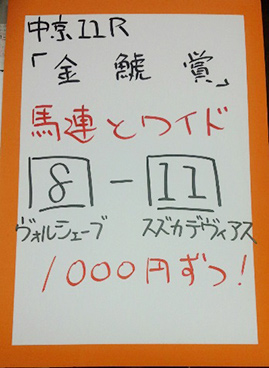 中京11R
「金鯱賞」
馬連とワイド
8-11
ヴォルシェーブ スズカデヴィアス
1000円ずつ!